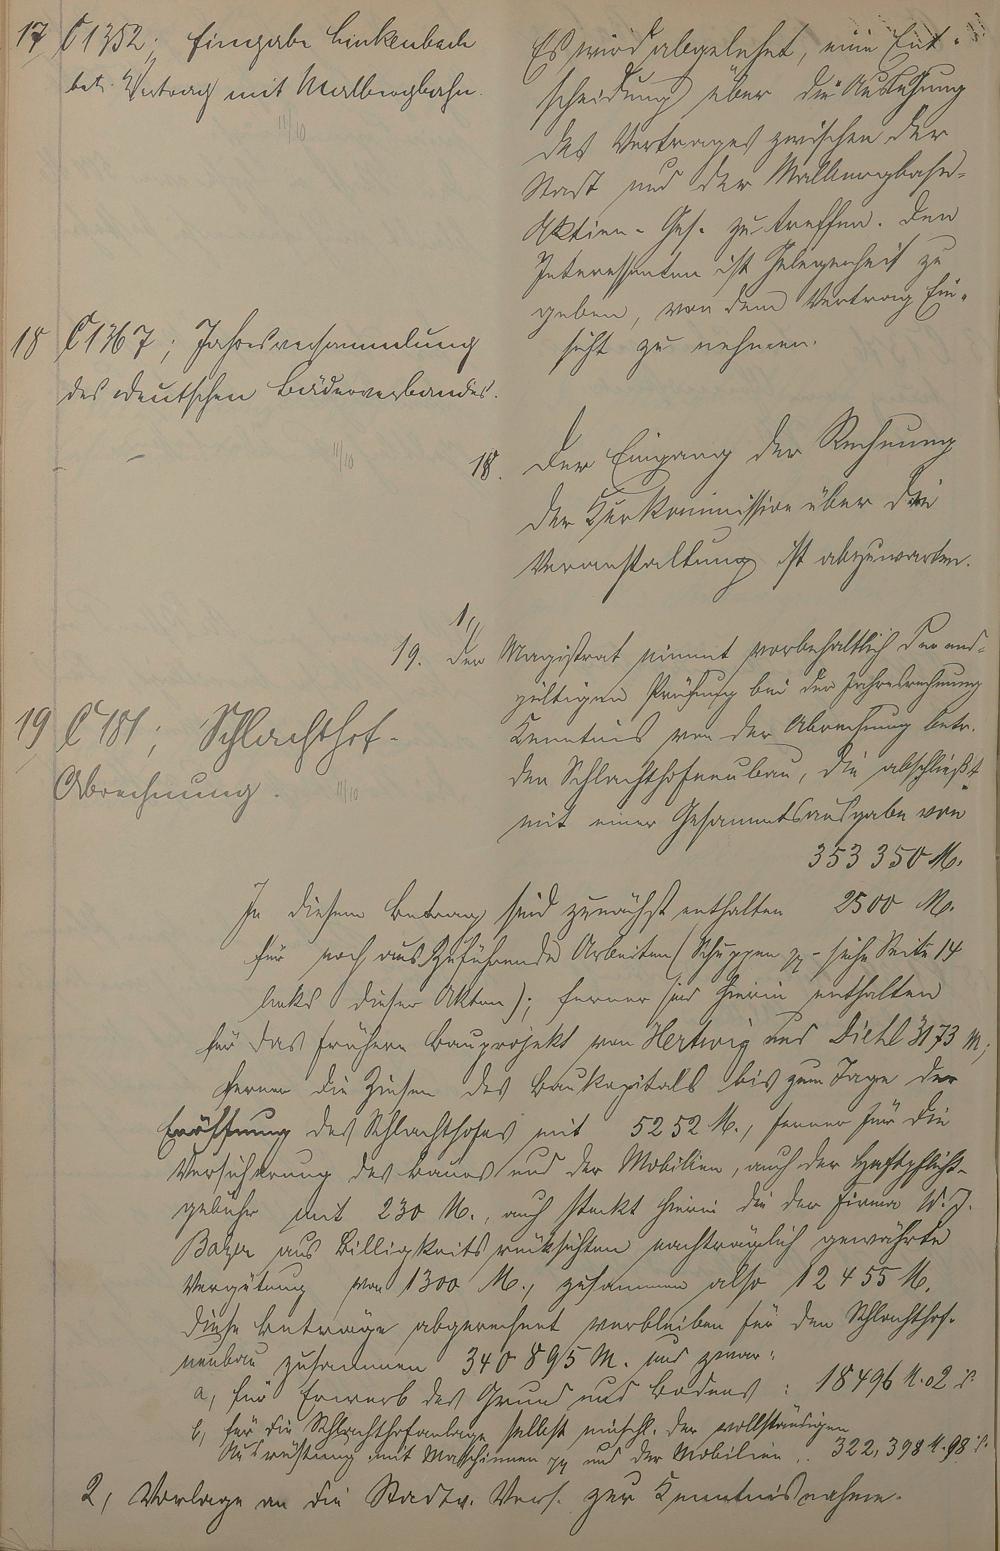 17 C 1352; Eingabe Linkenbach
betr. Vertrag mit Malbergbahn.
11/10
Es wird abgelehnt, eine Ent-
scheidung über die Auslegung
des Vertrages zwischen der
Stadt und der Malbergbahn-
Aktien-Ges. zu treffen. Den
Interessenten ist Gelegenheit zu
geben, von dem Vertrag Ein-
sicht zu nehmen.
18 C 1367; Jahresversammlung
des deutschen Bäderverbandes.
11/10
18. Der Eingang der Rechnung
der Kurkommission über die
Veranstaltung ist abzuwarten.
19 C 181; Schlachthof-
Abrechnung.
11/10
1,
19. Der Magistrat nimmt vorbehaltlich der end-
gültigen Prüfung bei der Jahresrechnung
Kenntnis von der Abrechnung betr.
den Schlachthofneubau, die abschließt
mit einer Gesammtsausgabe von
353 350 M.
In diesem Betrag sind zunächst enthalten 2500 M.
für noch auszuführende Arbeiten (Schuppen pp - siehe Seite 14
links dieser Akten); ferner sind hierin enthalten
für das frühere Bauprojekt von Hertwig und Diehl 3173 M,
ferner die Zinsen des Baukapitals bis zum Tage der
Eröffnung des Schlachthofes mit 5252 M., ferner für die
Versicherung des Baues und der Mobilien, auch der Haftpflicht-
gebühr mit 230 M., auch steckt hierin die der Firma W. J.
Balzer aus Billigkeitsrücksichten nachträglich gewährte
Vergütung von 1300 M., zusammen also 12 455 M.
Diese Beträge abgerechnet verbleiben für den Schlachthof-
neubau zusammen 340 895 M. und zwar:
a, für Erwerb des Grund und Bodens : 18496 M. 02
b, für die Schlachthofanlage selbst einschl. der vollständigen
Ausrüstung mit Maschinen pp und der Mobilien .. 322,398 M. 98
2, Vorlage an die Stadtv. Vers. zur Kenntnisnahme.